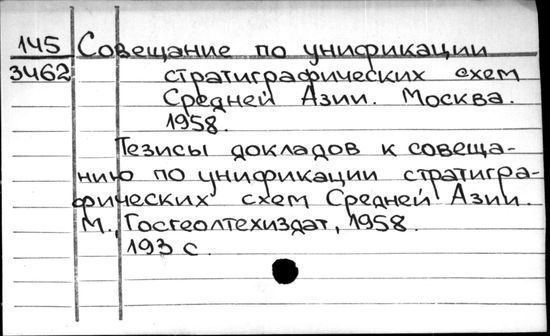 145 Совещание по унификации
3462 стратиграфических схем
Средней Азии. Москва.
1958.
Тезисы докладов к совеща-
нию по унификации стратигра-
фических схем Средней Азии.
М., Госгеолтехиздат, 1958.
193 с.